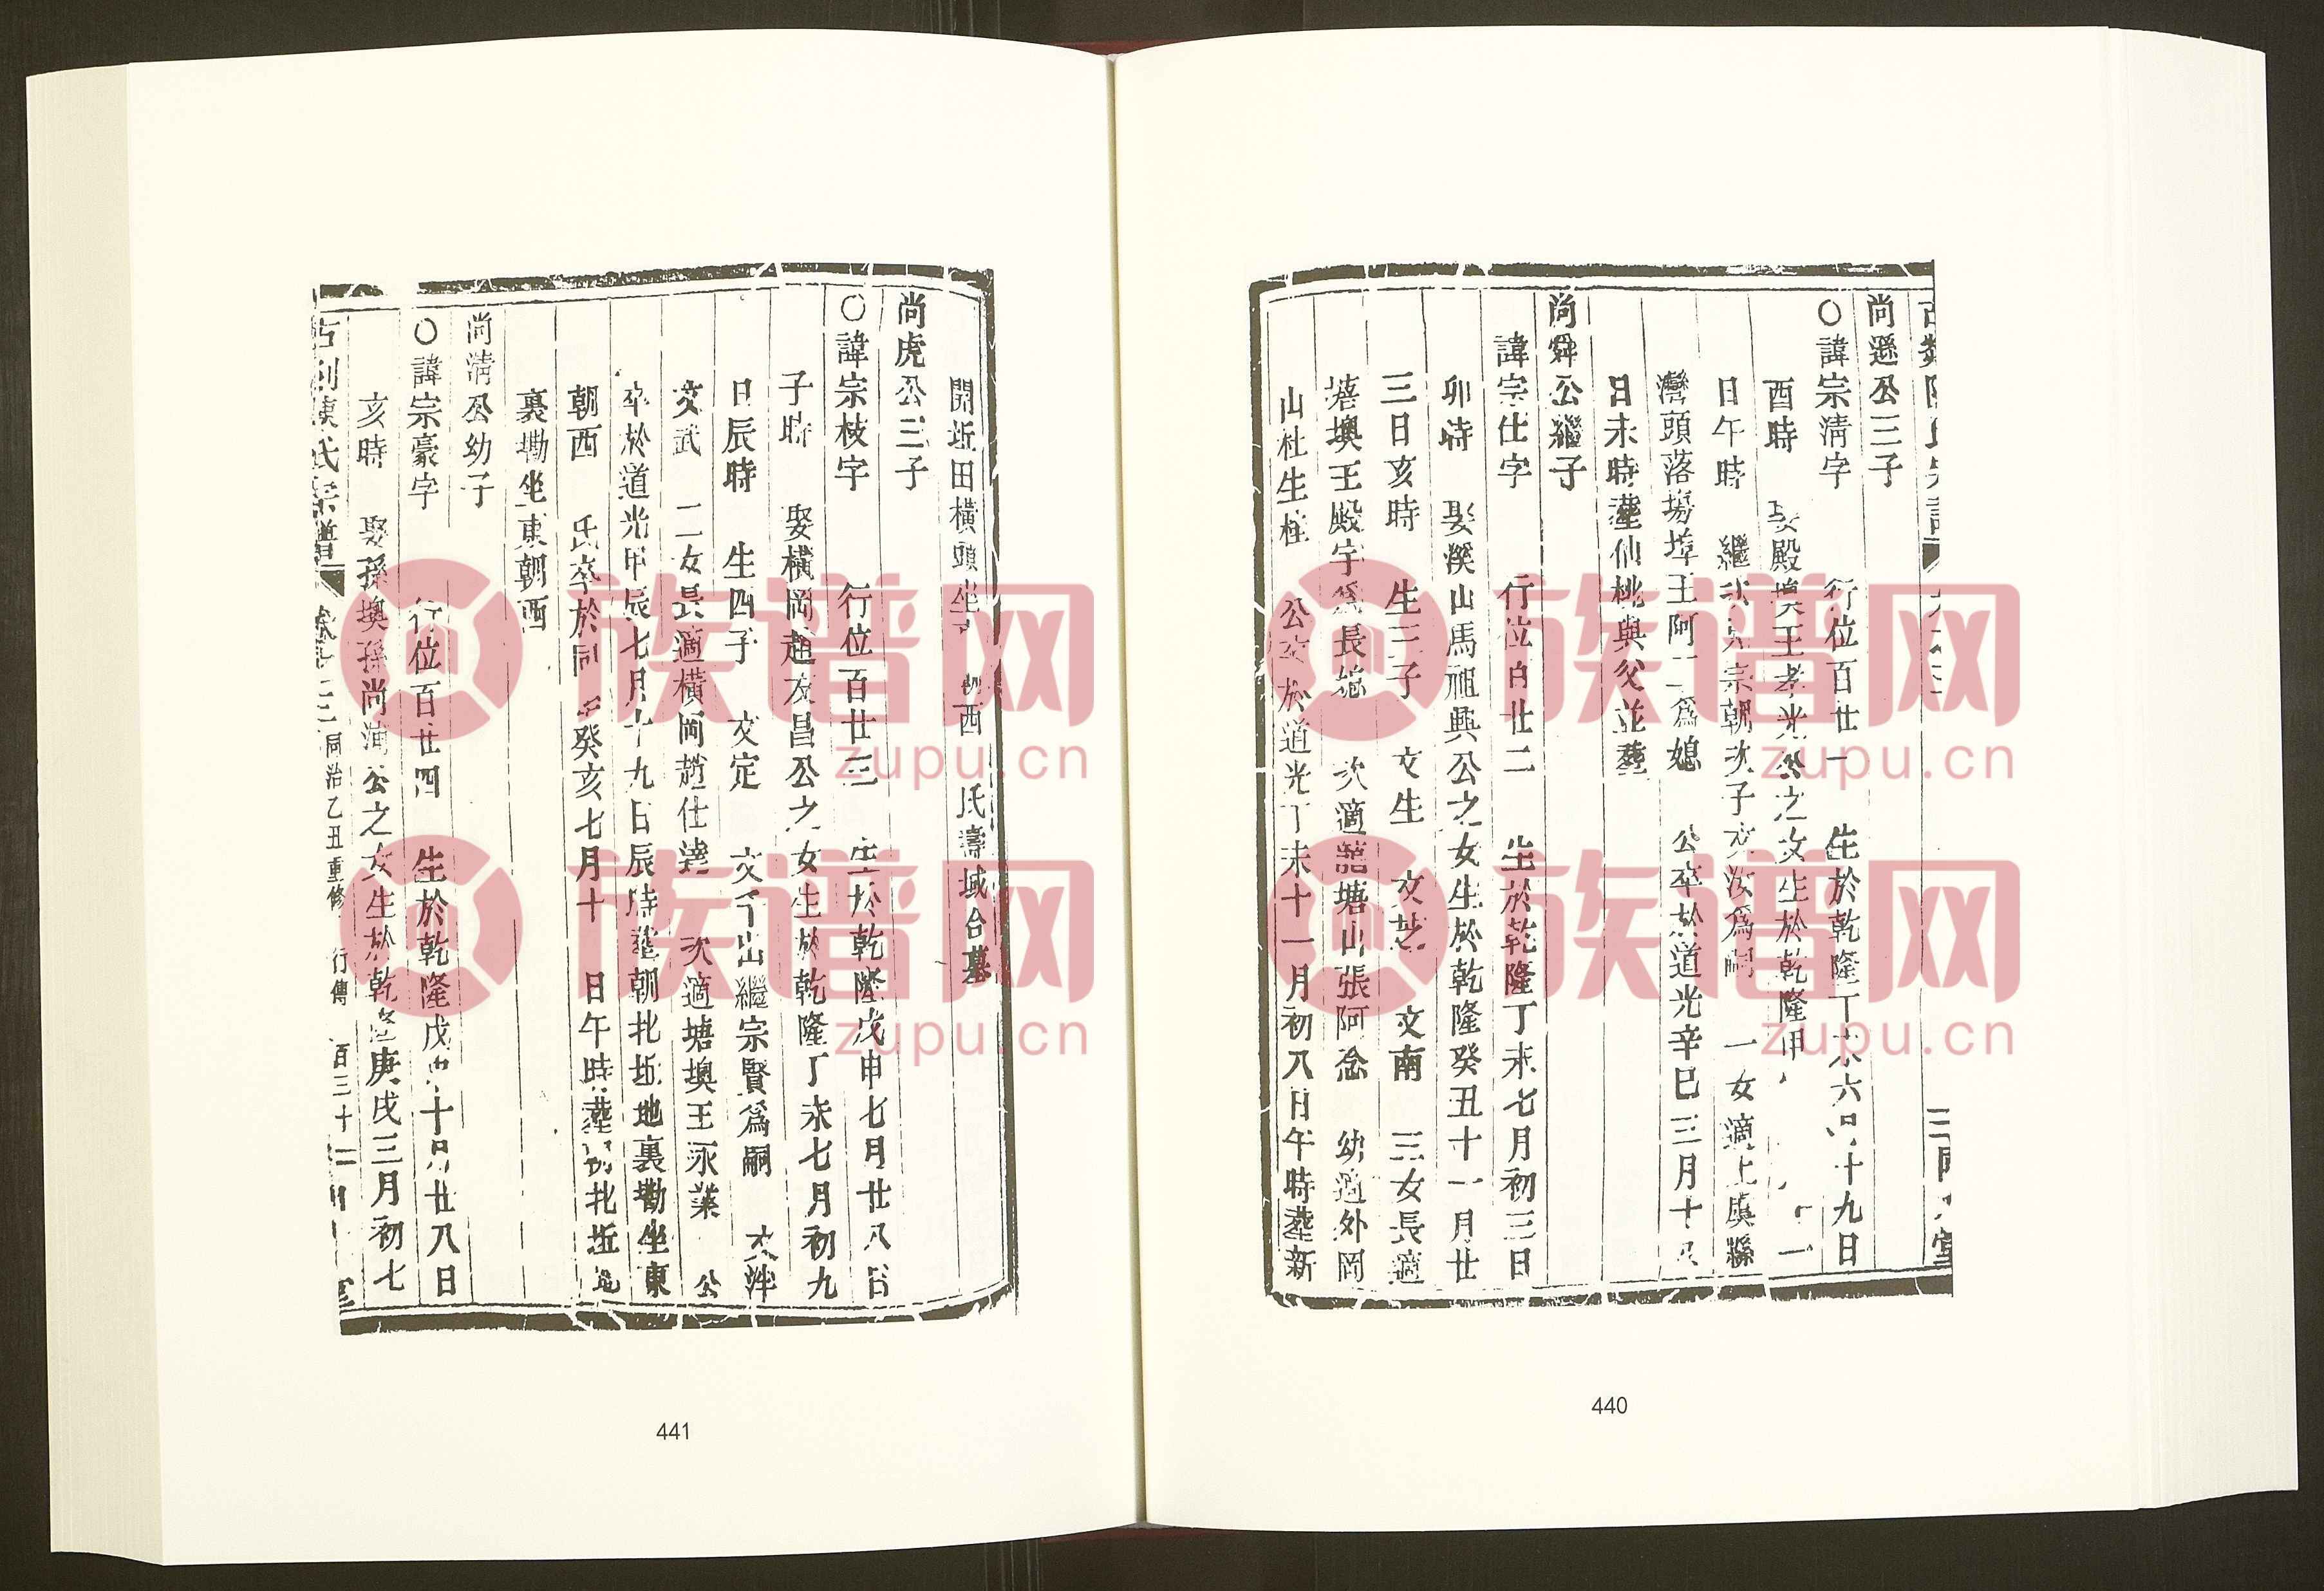 尚遜公三子
○諱宗淸字 行位百廿一 生於乾隆丁 六 十九日
酉時 娶殿 王孝 公之女生於乾隆 一
日午時 繼 宗朝次子文汝爲嗣 一女適上虞縣
灣頭落塲 王阿二爲媳 公卒於道光辛巳三月十
日未時塟仙桃與父並塟
尚舜公繼子
諱宗仕字 行位百廿二 生於乾隆丁未七月初三日
卯時 娶溪山馬祖興公之女生於乾隆癸丑十一月廿
三日亥時 生三子 文生 文芝 文南 三女長適
墺王殿宇爲長媳 次適 塘山張阿念 幼適外岡
山杜生桂 公卒於道光丁未十一月初八日午時塟新
440
開坵田橫頭坐 朝西 氏壽域台墓
尚虎公三子
○諱宗枝字 行位百廿三 生於乾隆戊申七月廿八日
子時 娶橫岡趙友昌公之女生於乾隆丁未七月初九
日辰時 生四子 文定 文 出繼宗賢爲嗣 文泮
文武 二女長適橫岡趙仕 次適塘墺王永業 公
卒於道光甲辰七月十九日辰時塟朝北坵地裏塝坐東
朝西 氏卒於同 癸亥七月十 日午時塟朝北坵
裏塝坐東朝西
尚淸公幼子
○諱宗豪字 行位百廿四 生於乾隆戊申十 月廿八日
亥時 娶孫墺孫尚 公之女生於乾隆庚戌三月初七
氏宗譜 同治乙丑重修 行傳
441
族谱网
zupu.cn
族谱网
zupu.cn
族谱网
zupu.cn
族谱网
zupu.cn